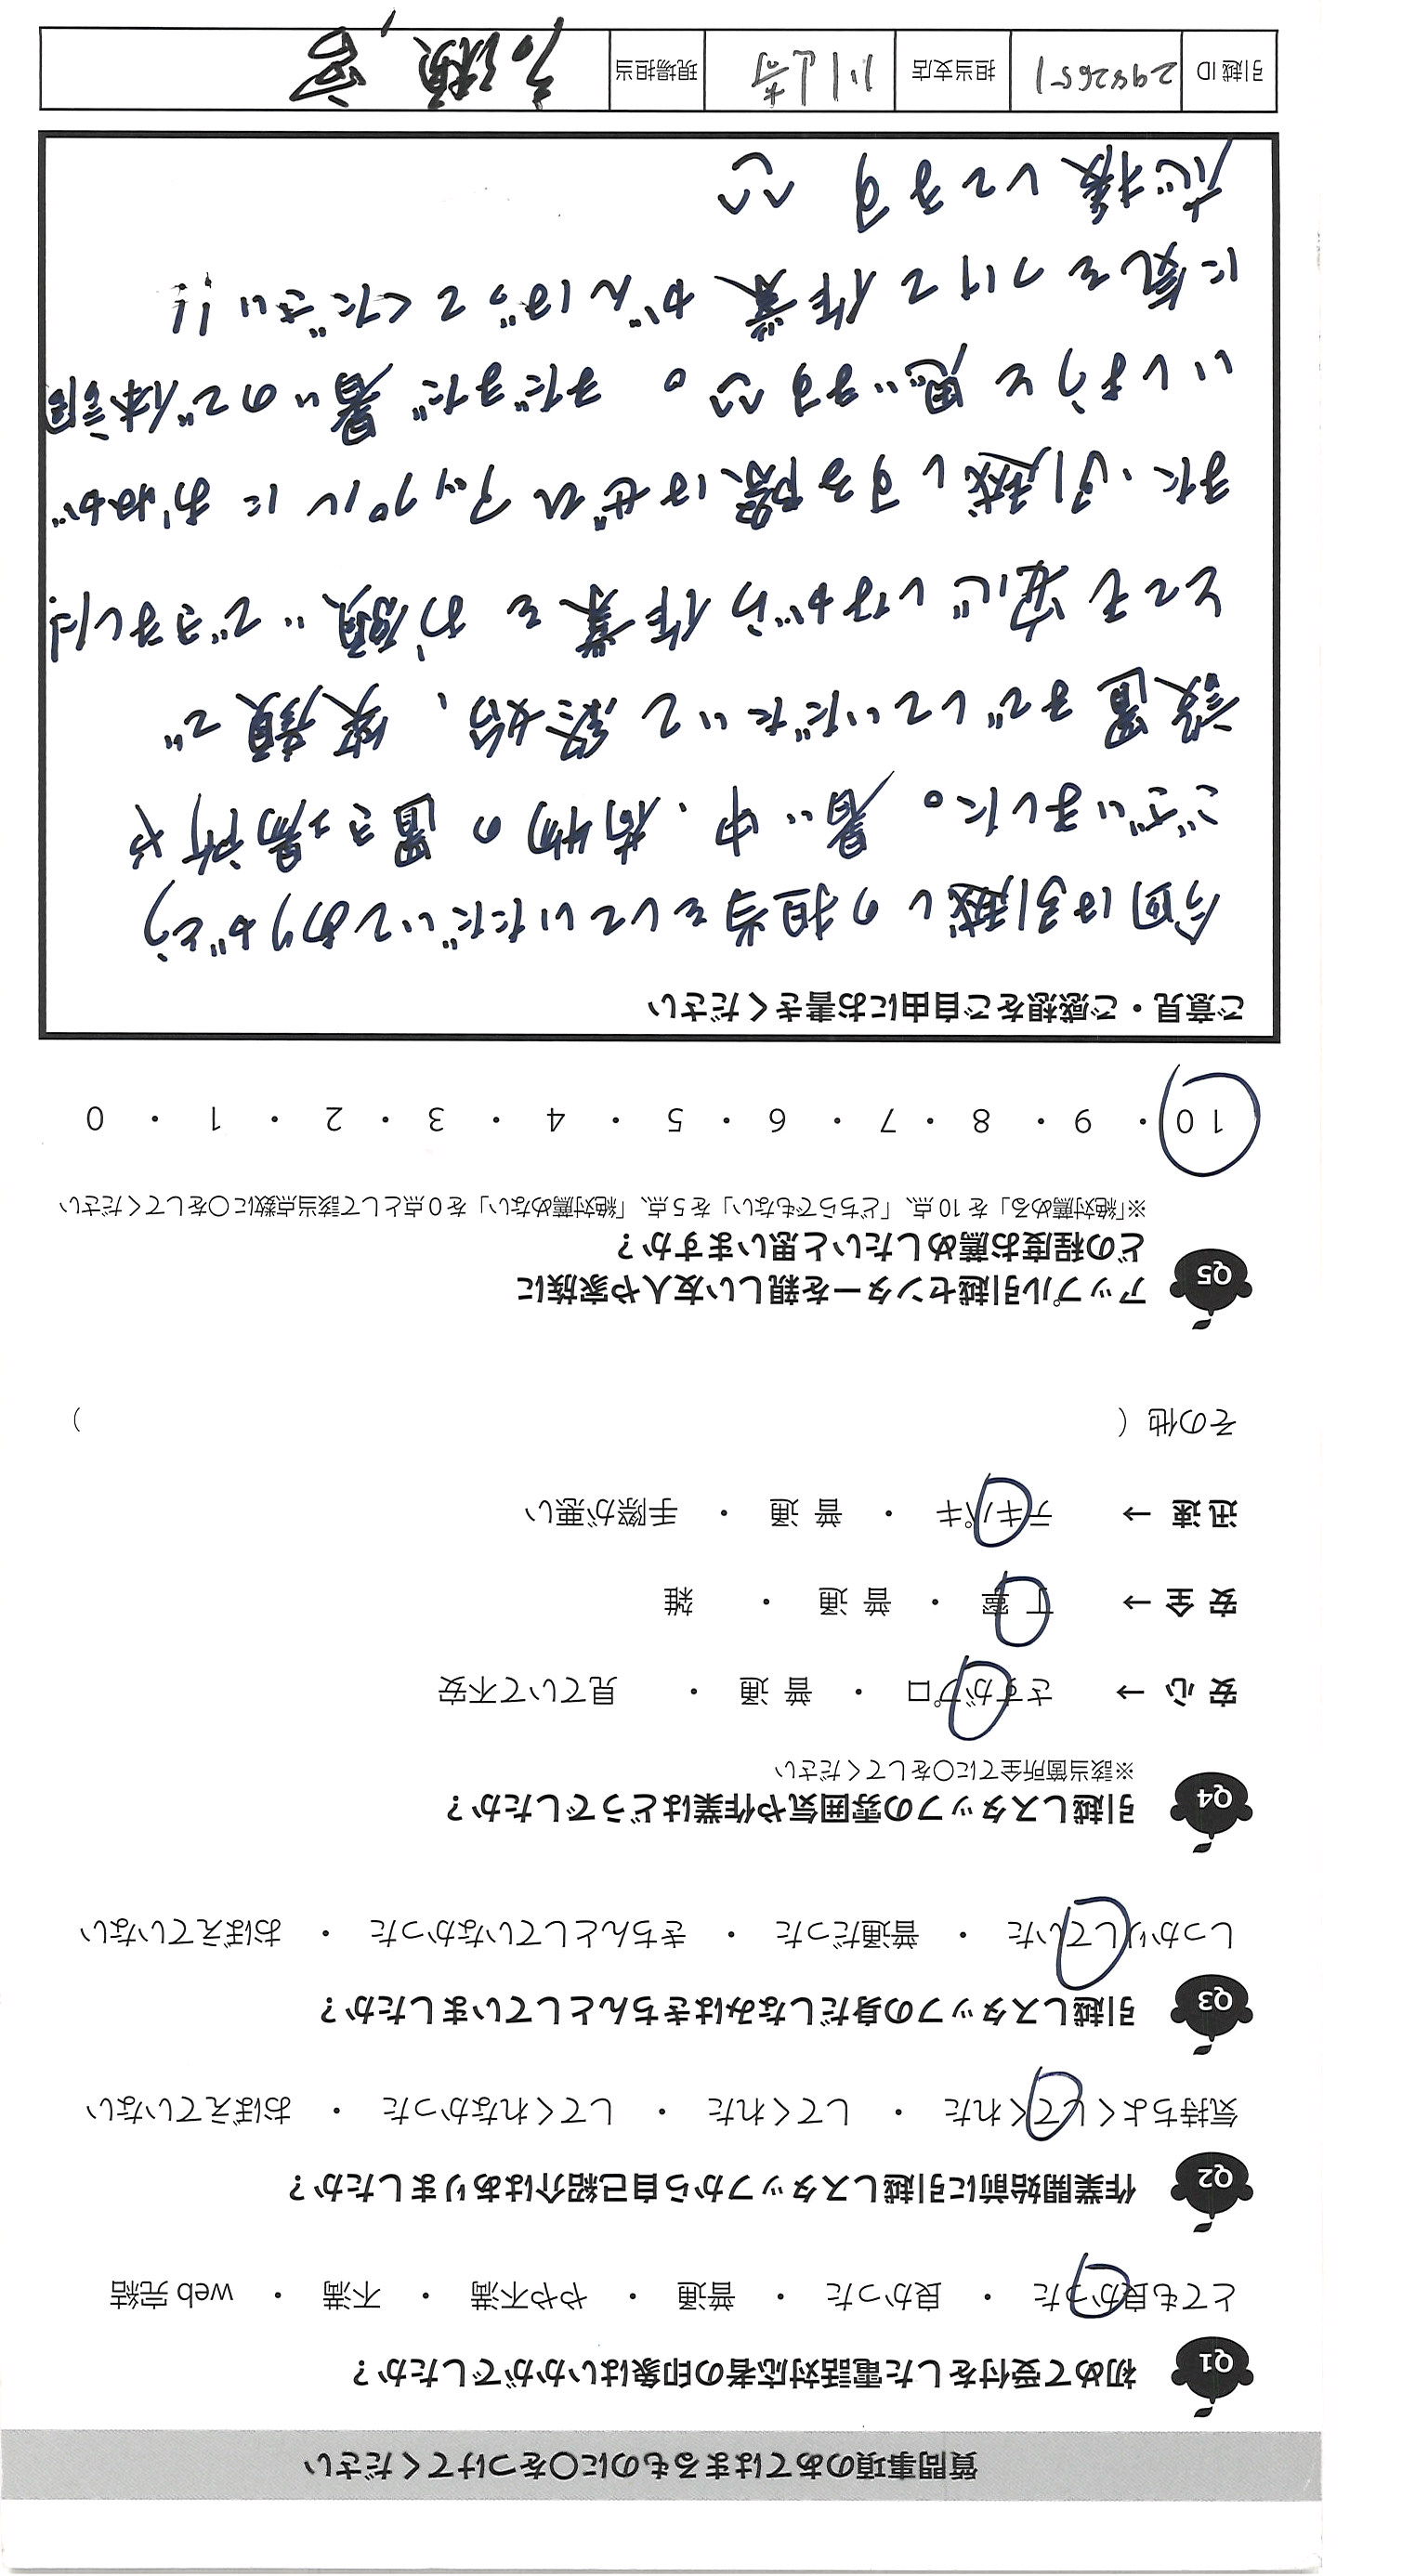 質問事項のあてはまるものに〇をつけてください
Q1 初めて受付をした電話対応者の印象はいかがでしたか？
とても良かった ・ 良かった ・ 普通 ・ やや不満 ・ 不満 ・ web 完結
Q2 作業開始前に引越しスタッフから自己紹介はありましたか？
気持ちよくしてくれた ・ してくれた ・ してくれなかった ・ おぼえていない
Q3 引越しスタッフの身だしなみはきちんとしていましたか？
しっかりしていた ・ 普通だった ・ きちんとしていなかった ・ おぼえていない
Q4 引越しスタッフの雰囲気や作業はどうでしたか？
※該当箇所全てに〇をしてください
安 心 → さすがプロ ・ 普 通 ・ 見ていて不安
安 全 → 丁 寧 ・ 普 通 ・ 雑
迅 速 → テキパキ ・ 普 通 ・ 手際が悪い
その他（ ）
Q5 アップル引越センターを親しい友人や家族に
どの程度お薦めしたいと思いますか？
※「絶対薦める」を 10 点、「どちらでもない」を 5 点、「絶対薦めない」を 0 点として該当点数に〇をしてください
10 ・ 9 ・ 8 ・ 7 ・ 6 ・ 5 ・ 4 ・ 3 ・ 2 ・ 1 ・ 0
ご意見・ご感想をご自由にお書きください
今回は引越しの担当をしていただいてありがとう
ございました。暑い中、荷物の置き場所や
設置までしていただいて終始、笑顔で
とても安心しながら作業をお願いできました!
また、引越しする際はぜひアップルにおねが
いしようと思います^^。まだまだ暑いので体調
に気をつけて作業がんばってください!!
応援してます ^^
引越 ID 2982651 担当支店 川崎 現場担当